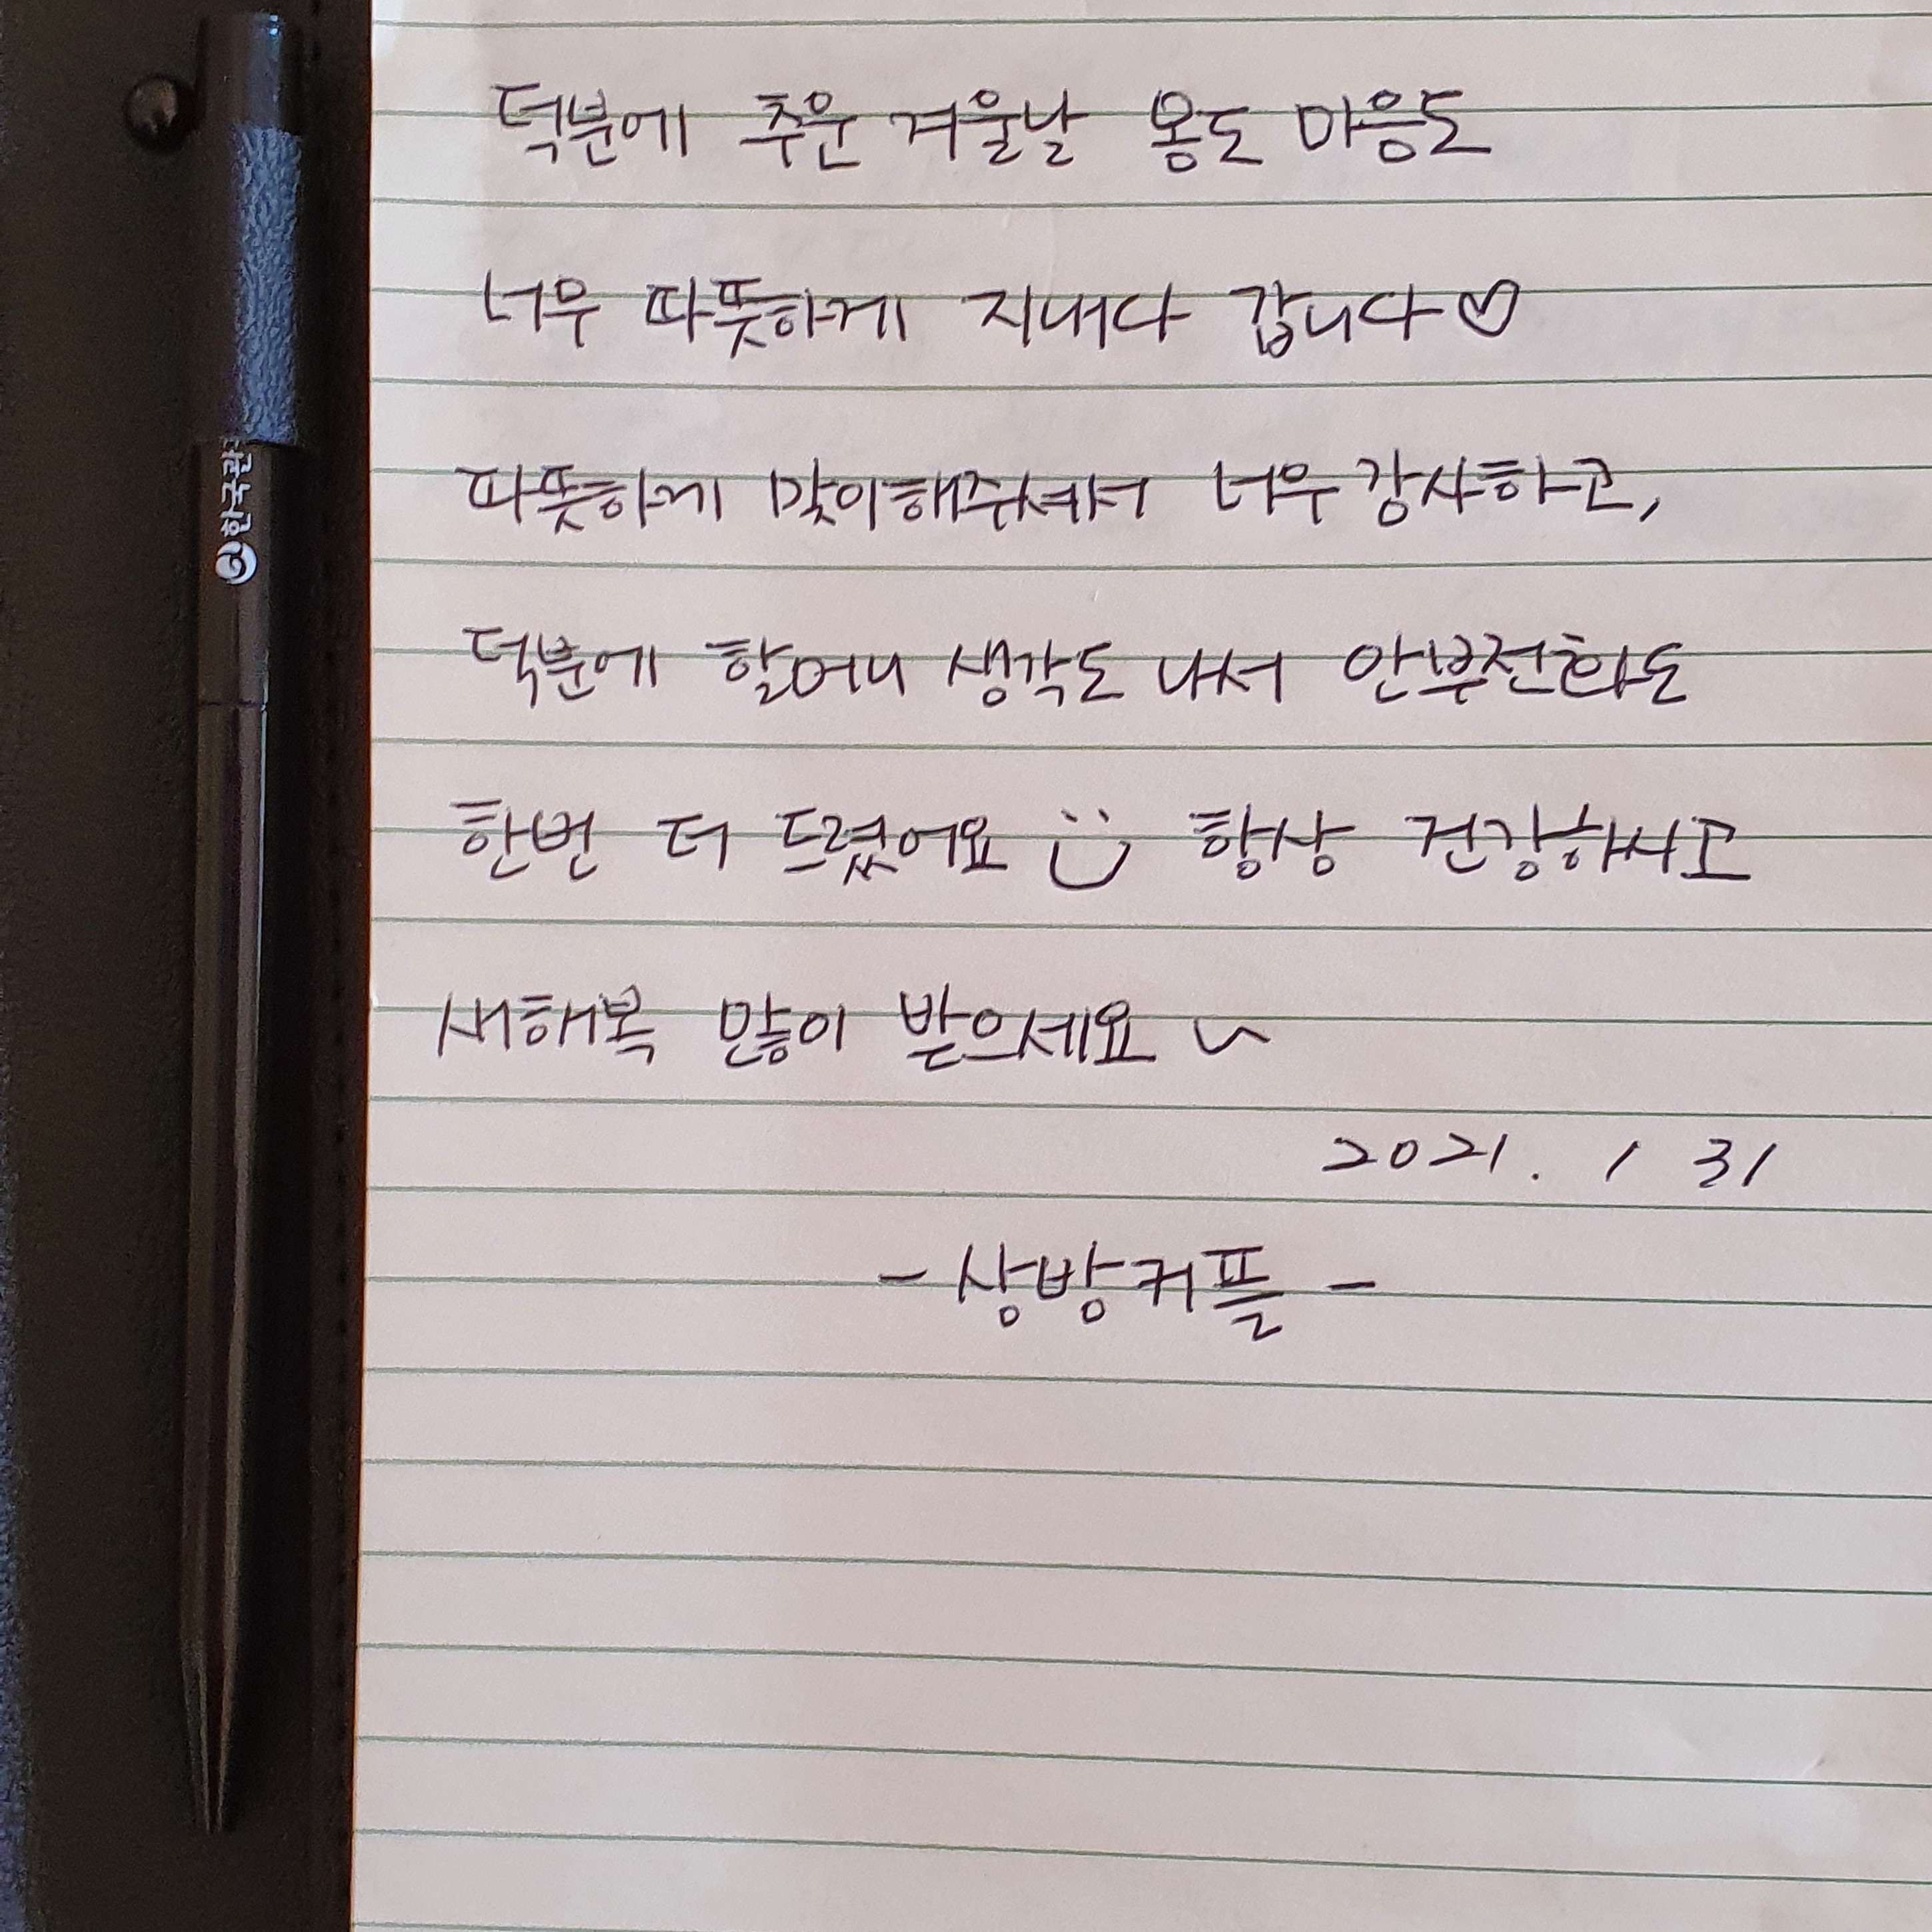 덕분에 추운 겨울날 몸도 마음도
너무 따뜻하게 지내다 갑니다♡
따뜻하게 맞이해주셔서 너무 감사하고,
덕분에 할머니 생각도 나서 안부전화도
한번 더 드렸어요 항상 건강하시고
새해복 많이 받으세요 ~
2021. 1 31
- 상방커플 -
한국관